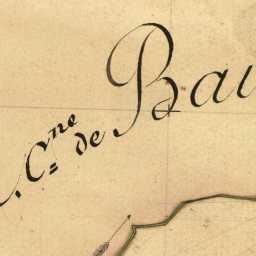 C.ne de Bai